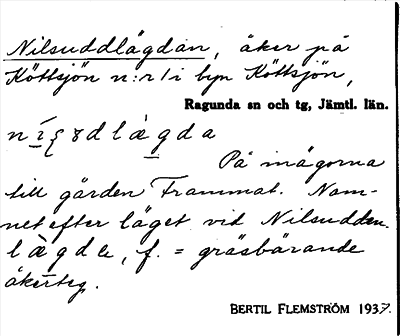 Nilsuddlägdan, åker på
Köttsjön n:r 1 i byn Köttsjön,
Ragunda sn och tg, Jämtl. län.
På inägorna
till gården Frammat. Nam-
net efter läget vid Nilsudden.
f. = gräsbärande
åkerteg.
BERTIL FLEMSTRÖM 1937.